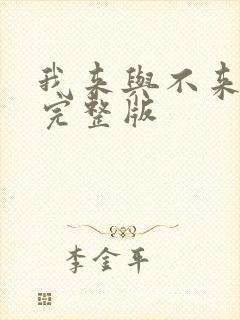 我来與不来
完整版
李金平